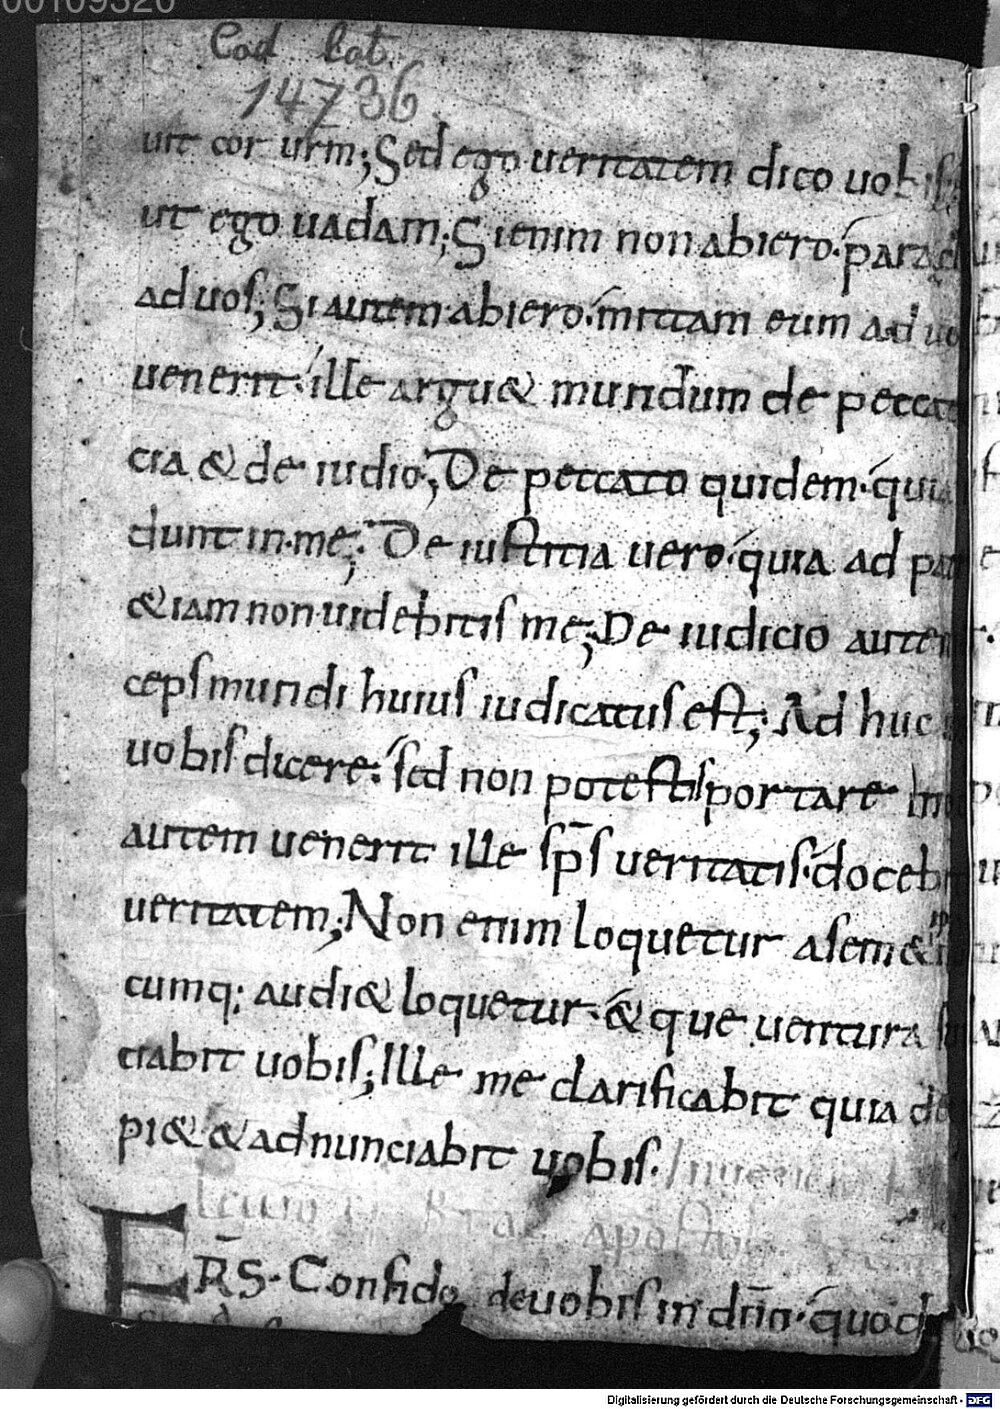 00109320
Cod lat
14736
uit cor urm; Sed ego ueritatem dico uobis
ut ego uadam; Si enim non abiero. para
ad uos; Si autem abiero. mittam eum ad uo
uenerit. ille arguet mundum de pecca
cia & de iudio; De peccato quidem. quia
dunt in me; De iustitia uero. quia ad pa
& iam non uidebitis me; De iudicio autem
ceps mundi huius iudicatus est; Ad huc
uobis dicere. sed non potestis portare
autem uenerit ille sp̄s ueritatis. doceb
ueritatem; Non enim loquetur a sem&
cumq; audi& loquetur. & que uentura
ciabit uobis; Ille me clarificabit quia de
pi& & adnunciabit uobis.
FRS. Confido de uobis in dn̄o. quod
Digitalisierung gefördert durch die Deutsche Forschungsgemeinschaft - DFG